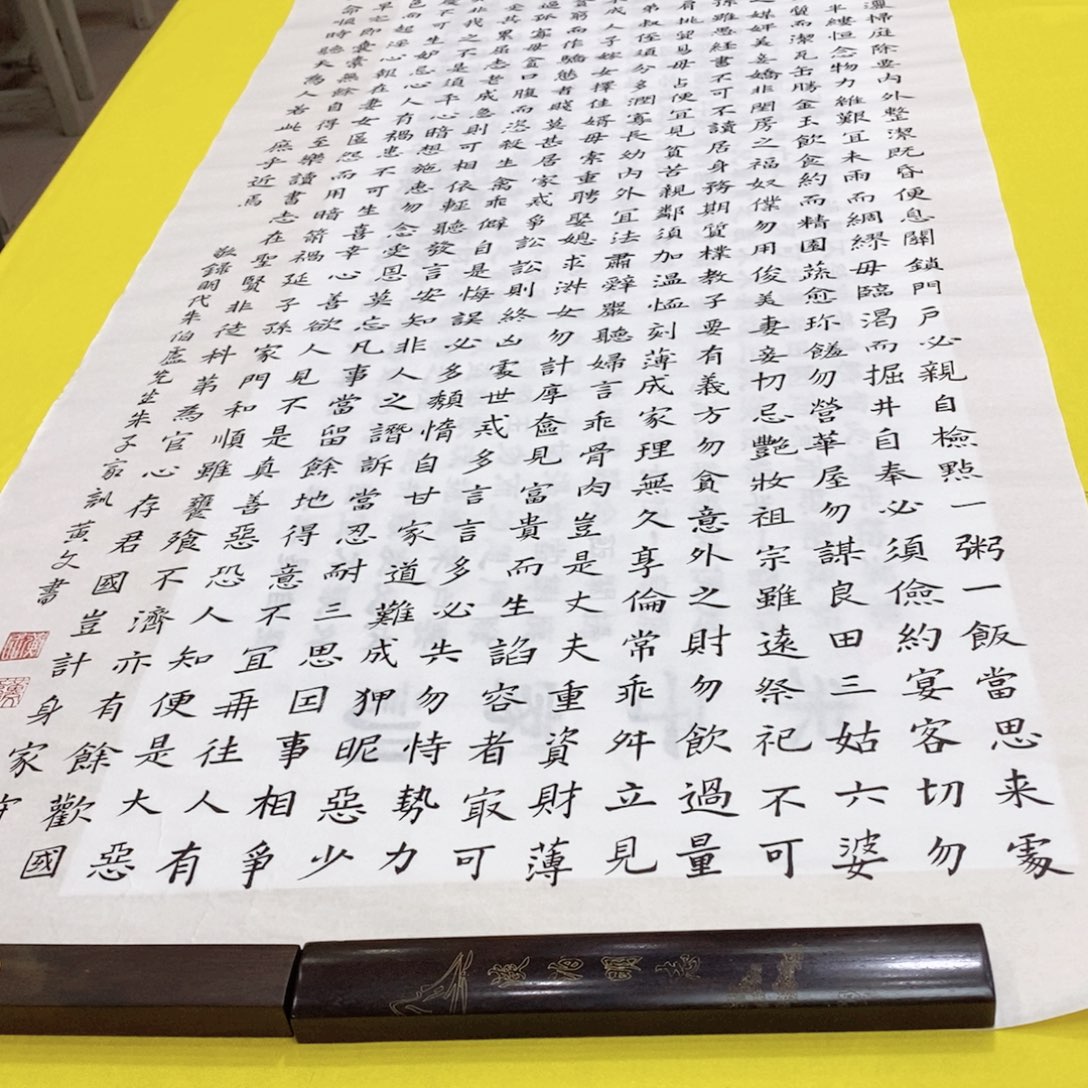 灑掃庭除要內外整潔既昏便息關鎖門戶必親自檢點一粥一飯當思来處
半縷恒念物力維艱宜未雨而綢繆毋臨渴而掘井自奉必須儉約宴客切勿
質而潔瓦缶勝金玉飲食約而精園蔬愈珍饈勿營華屋勿謀良田三姑六婆
之媒婢美妾嬌非閨房之福奴僕勿用俊美妻妾切忌艷妝祖宗雖遠祭祀不可
孫雖愚經書不可不讀居身務期質樸教子要有義方勿貪意外之財勿飲過量
肩挑貿易毋占便宜見貧苦親鄰須加温恤刻薄成家理無久享倫常乖舛立見
弟叔侄須分多潤寡長幼內外宜法肅辭嚴聽婦言乖骨肉豈是丈夫重資財薄
成人子嫁女擇佳婿毋索重聘娶媳求淑女勿計厚奩見富貴而生諂容者㝡可
貧窮而作驕態者賤莫甚居家戒爭訟訟則終凶處世戒多言言多必失勿恃勢力
逼孤寡毋貪口腹而恣殺生禽乖僻自是悔誤必多頹惰自甘家道難成狎昵惡少
其累屈志老成急則可相依輕聽發言安知非人之譖訴當忍耐三思因事相爭
非我之不是須平心暗想施惠勿念受恩莫忘凡事當留餘地得意不宜再往人有
慶不可生妒忌心人有禍患不可生喜幸心善欲人見不是真善惡恐人知便是大惡
色而起淫心報在妻女匿怨而用暗箭禍延子孫家門和順雖饔飧不濟亦有餘歡國
早完即囊橐無餘自得至樂讀書志在聖賢非徒科第為官心存君國豈計身家守
命順時聽天為人若此庶乎近焉
敬錄明代朱伯廬先生朱子家訓 黃文書
淡泊明志